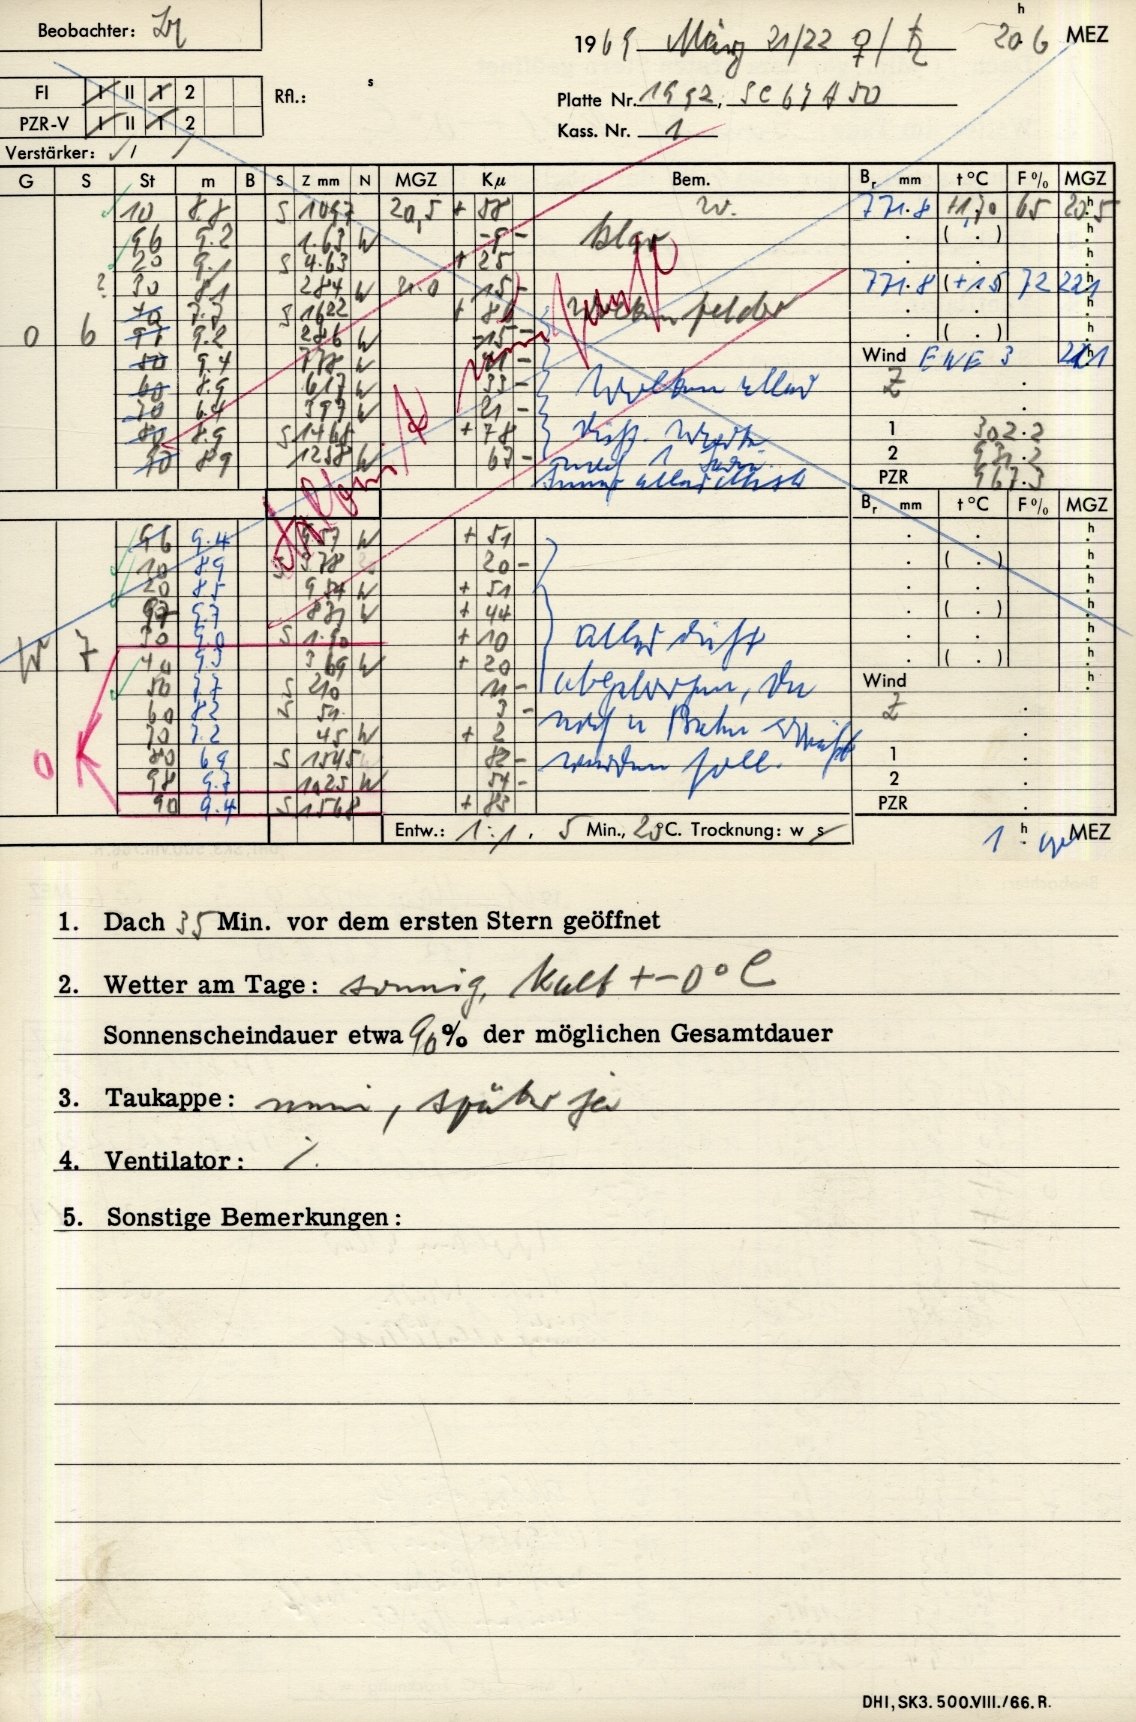 Beobachter:
1969 März 21/22 ♀/♄ 20 h 6 MEZ
FI I II 1 2
Rfl.: s
Platte Nr. 1992, SC67A50
PZR-V I II 1 2
Kass. Nr. 1
Verstärker: /
G S St m B S Z mm N MGZ Kμ Bem. Br mm t °C F % MGZ
10 8.8 S 1097 20,5 + 58 w. 771.8 +1,70 65 20h5
96 9.2 1.63 W -9- klar . ( . ) h
20 9.1 S 4.63 + 25
? 30 8.1 284 W 21.0 15- 771.8 (+1.5) 72 22h1
40 7.7 S 1622 + 86 Wolkenfelder
0 6 97 9.2 286 W -15- . ( . ) h
50 9.4 778 W 41- Wind ENE 3
60 8.9 617 W 33- Wolken überall Z .
70 6.4 397 W 21-
80 8.9 S 1468 + 78 1 302.2
90 8.9 1258 W 67- 2
PZR 967.3
Br mm t °C F % MGZ
96 9.4 957 W + 51 . . h
10 8.9 S 378 20- . ( . ) h
20 8.5 954 W + 51 . . h
97 9.7 831 W + 44 . ( . ) h
W 7 30 9.0 S 1.90 + 10 alles dicht . . h
40 9.3 369 W + 20 . ( . ) h
50 7.7 S 210 11- abgebrochen, da Wind
60 8.2 S 51 3- Z .
70 7.2 45 W + 2
0 80 6.9 S 1545 82- werden soll. 1 .
98 9.7 1025 W 54- 2 .
90 9.4 S 1568 + 83 PZR .
Entw.: 1:1, 5 Min., 20°C. Trocknung: w s
1 h MEZ
1. Dach 35 Min. vor dem ersten Stern geöffnet
2. Wetter am Tage: sonnig, kalt +-0°C
Sonnenscheindauer etwa 90 % der möglichen Gesamtdauer
3. Taukappe: nein, später ja
4. Ventilator: /.
5. Sonstige Bemerkungen:
DHI, SK3. 500.VIII./66. R.